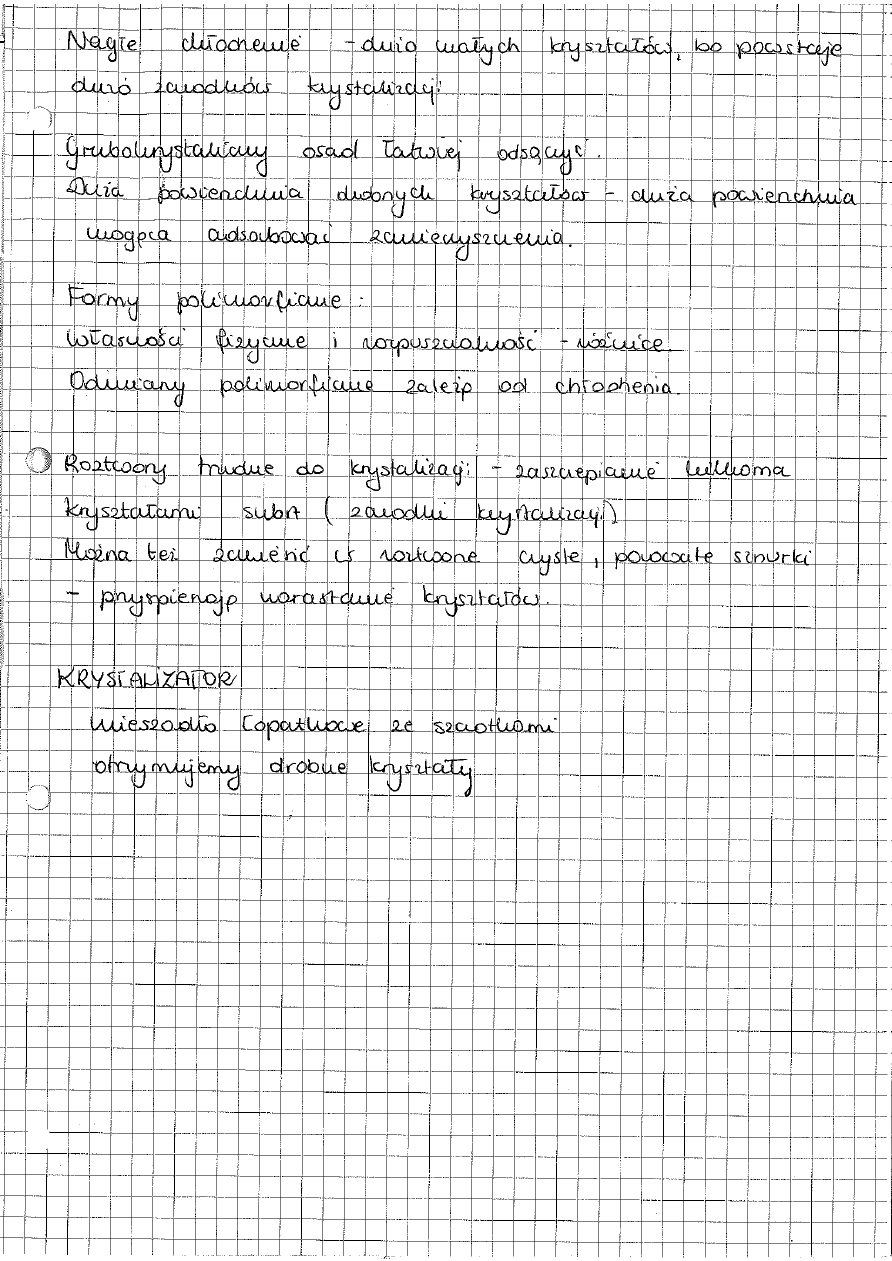 Nagłe chłodzenie - dużo małych kryształów, bo powstaje
dużo zarodków krystalizacji
Grubokrystaliczny osad łatwiej odsączyć.
Duża powierzchnia drobnych kryształów - duża powierzchnia
mogąca adsorbować zanieczyszczenia.
Formy polimorficzne :
własności fizyczne i rozpuszczalność - różnice.
Odmiany polimorficzne zależą od chłodzenia.
Roztwory trudne do krystalizacji - zaszczepianie kilkoma
kryształami subst (zarodki krystalizacji)
Można też zawiesić w roztworze czyste, porowate sznurki
- przyspieszają wzrastanie kryształów.
KRYSTALIZATOR
mieszadło łopatkowe ze szczotkami
otrzymujemy drobne kryształy